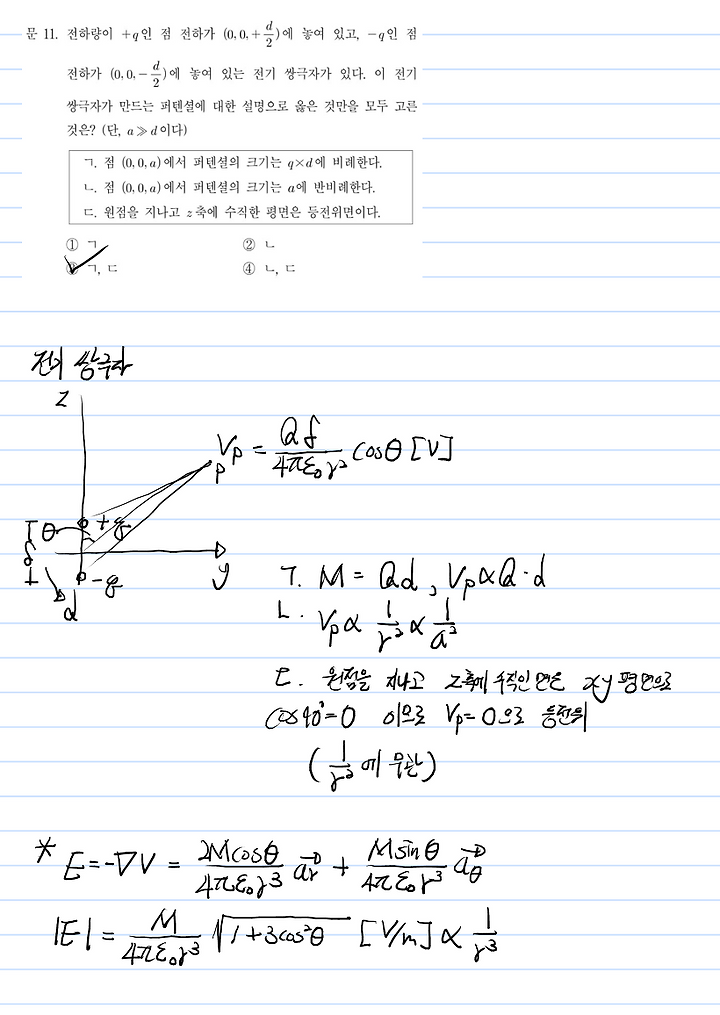 문 11. 전하량이 +q인 점 전하가 (0, 0, +d/2)에 놓여 있고, −q인 점
전하가 (0, 0, −d/2)에 놓여 있는 전기 쌍극자가 있다. 이 전기
쌍극자가 만드는 퍼텐셜에 대한 설명으로 옳은 것만을 모두 고른
것은? (단, a ≫ d이다)
ㄱ. 점 (0, 0, a)에서 퍼텐셜의 크기는 q×d에 비례한다.
ㄴ. 점 (0, 0, a)에서 퍼텐셜의 크기는 a에 반비례한다.
ㄷ. 원점을 지나고 z축에 수직한 평면은 등전위면이다.
① ㄱ ② ㄴ
③ ㄱ, ㄷ ④ ㄴ, ㄷ
전기 쌍극자
z
P Vp = Qδ/4πε₀r² cosθ [V]
θ +q
δ
y
−q
d
ㄱ. M = Qd, Vp ∝ Q·d
ㄴ. Vp ∝ 1/r² ∝ 1/a²
ㄷ. 원점을 지나고 z축에 수직인 면은 xy 평면으로
cos90°=0 이므로 Vp=0으로 등전위
(1/r²에 무관)
* E=-∇V = 2Mcosθ/4πε₀r³ a⃗r + Msinθ/4πε₀r³ a⃗θ
|E| = M/4πε₀r³ √1+3cos²θ [V/m] ∝ 1/r³